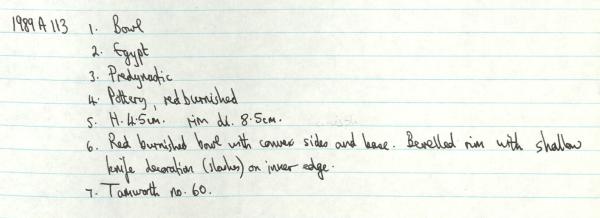 1989 A 113 1. Bowl
2. Egypt
3. Predynastic
4. Pottery, red burnished
5. H. 4.5cm. rim di. 8.5cm.
6. Red burnished bowl with convex sides and base. Bevelled rim with shallow
knife decoration (slashes) on inner edge.
7. Tamworth no. 60.